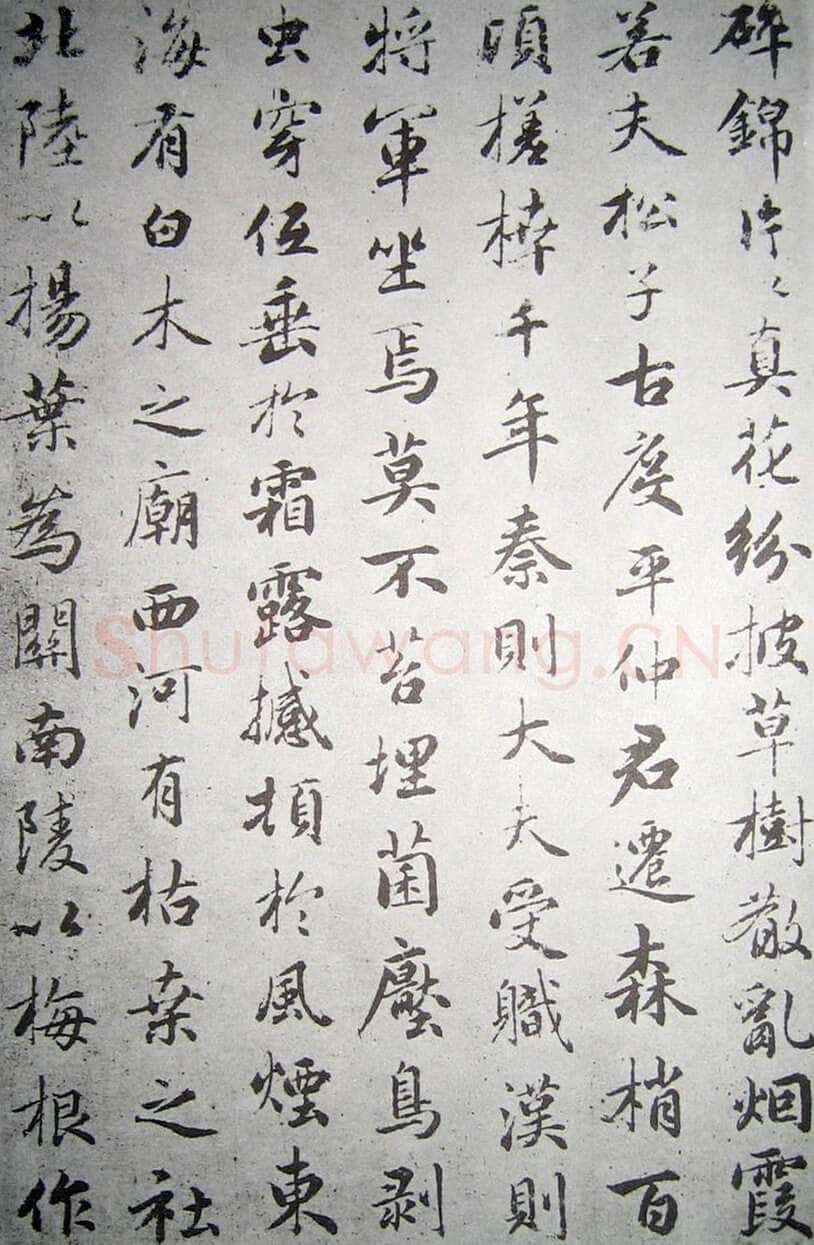 碎錦片々真花紛披草樹散亂烟霞
若夫松子古度平仲君遷森梢百
頃槎枿千年秦則大夫受職漢則
將軍坐焉莫不苔埋菌壓鳥剥
虫穿低垂於霜露撼頓於風煙東
海有白木之廟西河有枯桒之社
北陸以楊葉為關南陵以梅根作
Shufawang.CN